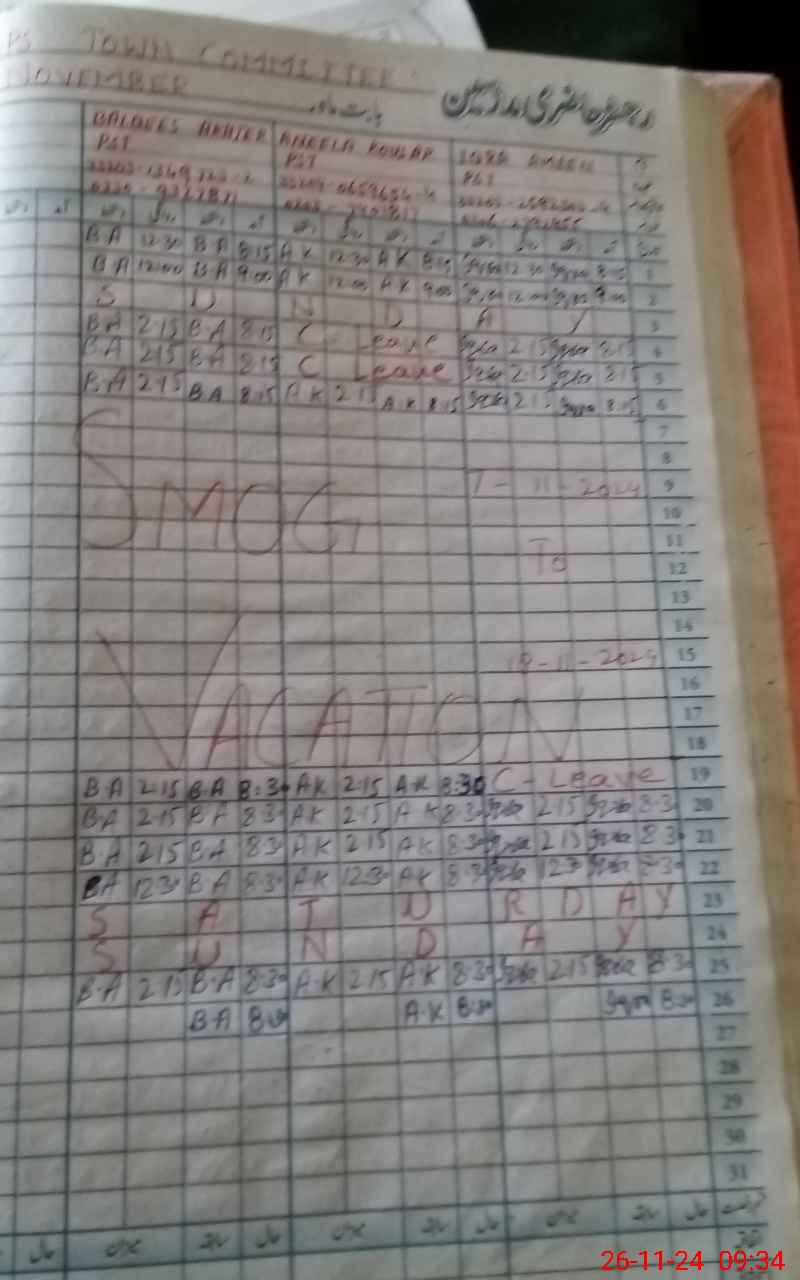 PS TOWN COMMITTEE
NOVEMBER
رجسٹر حاضری مدرسین
بابت ماہ
BALQEES AKHTER ANEELA KOUSAR IQRA AMEEN
PST PST PST
B·A 12:30 B A 8:15 A K 12:30 A K 8:15 Iqra 12:30 Iqra 8:15 1
B A 12:00 B A 9:00 A K 12:00 A K 9:00 Iqra 12:00 Iqra 9:00 2
S U N D A Y 3
BA 2:15 B A 8:15 C - Leave Iqra 2:15 Iqra 8:15 4
BA 2:15 BA 8:15 C Leave Iqra 2:15 Iqra 8:15 5
BA 2:15 BA 8:15 A K 2:15 A K 8:15 Iqra 2:15 Iqra 8:15 6
7
8
SMOG 7 - 11 - 2024 9
10
11
To 12
13
14
-11-2024 15
16
VACATION 17
18
B·A 2:15 B·A 8:30 A·K 2:15 A·K 8:30 C - Leave 19
B·A 2:15 B·A 8:30 A·K 2:15 A K 8:30 Iqra 2:15 Iqra 8:30 20
B·A 2:15 B·A 8:30 A·K 2:15 A·K 8:30 Iqra 2:15 Iqra 8:30 21
BA 12:30 B·A 8:30 A·K 12:30 A·K 8:30 Iqra 12:30 Iqra 8:30 22
S A T U R D A Y 23
S U N D A Y 24
B·A 2:15 B·A 8:30 A·K 2:15 A·K 8:30 Iqra 2:15 Iqra 8:30 25
B·A 8:30 A·K 8:30 Iqra 8:30 26
27
28
29
30
31
26-11-24 09:34